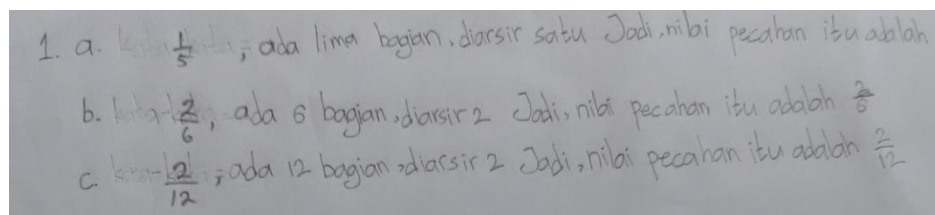 1. a. 1/5, ada lima bagian, diarsir satu Jadi, nilai pecahan itu adalah
b. 2/6, ada 6 bagian, diarsir 2 Jadi, nilai pecahan itu adalah 2/6
c. 2/12, ada 12 bagian, diarsir 2 Jadi, nilai pecahan itu adalah 2/12